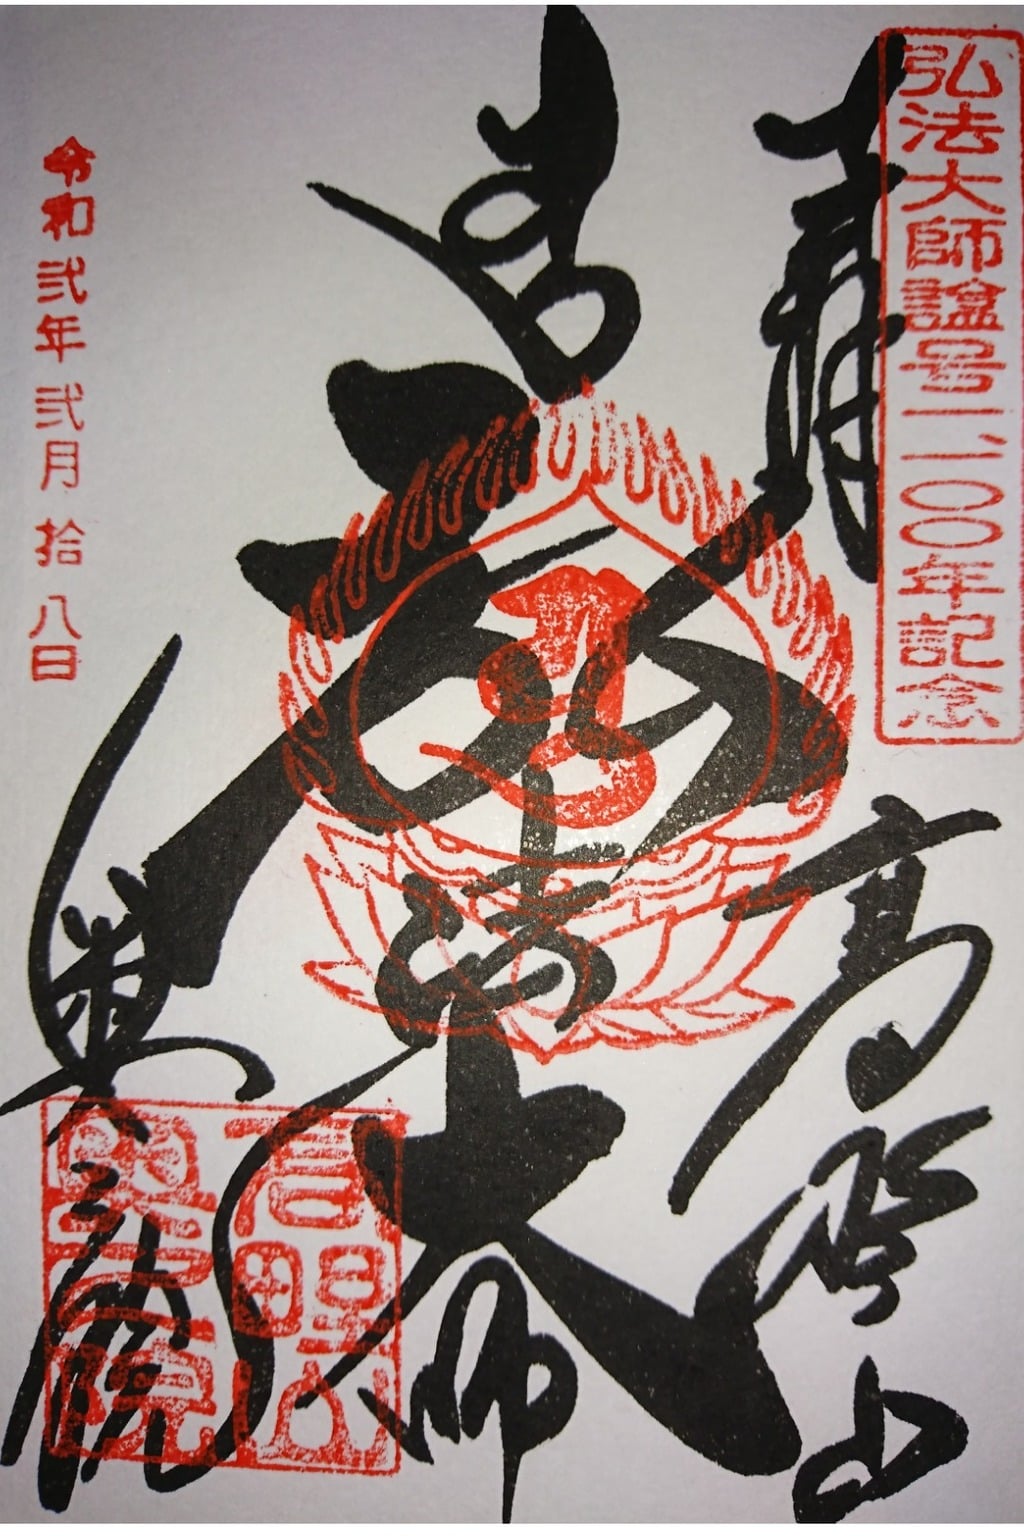 弘法大師諡号一、一〇〇年記念
高野山
大師
奥之院
令和弐年弐月拾八日
高野山
奥之院